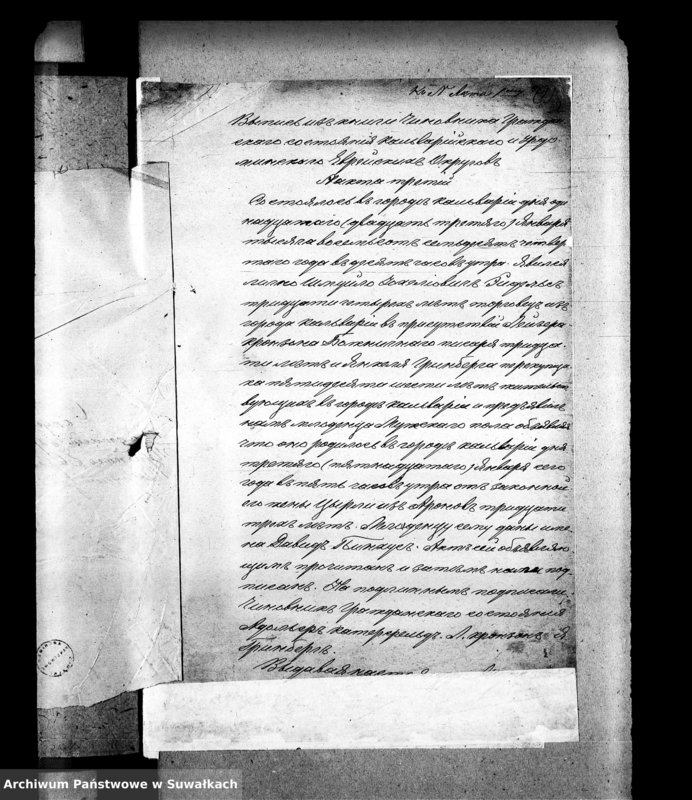 Выпись изъ книги Чиновника Граждан-
скаго состоянія Кальварійскаго и Удрі-
минскаго Еврейскихъ Округовъ
Акта третій
Состоялось въ городѣ Кальваріи дня од-
надцатаго (двадцать третяго) Января
тысяча восемьсотъ семьдесятъ четвер-
таго года въ десять часовъ утра. Явился
лично Шмуйло
тридцати четырехъ лѣтъ торговецъ изъ
города Кальваріи въ присутствіи Лейзера
Кронзона Божничнаго писаря тридца-
ти лѣтъ и Янкеля Гринберга перекупщи-
ка пятидесяти шести лѣтъ жительст-
вующихъ въ городѣ Кальваріи и предъявилъ
намъ младенца Мужескаго пола объявляя
что оно родилось въ городѣ Кальваріи дня
третяго (пятнадцатаго) Января сего
года въ пять часовъ утра отъ законной
его жены Цырли изъ Ароновъ тридцати
трехъ лѣтъ. Младенцу сему даны име-
на Давидъ Пинкусъ. Актъ сей объявляю-
щимъ прочитанъ и затѣмъ нами под-
писанъ. На подлинномъ подписали
Чиновникъ Гражданскаго состоянія
Адольфъ Катерфельдъ. Л. Кронзонъ. Я
Гринбергъ.
Выдавая
Archiwum Państwowe w Suwałkach